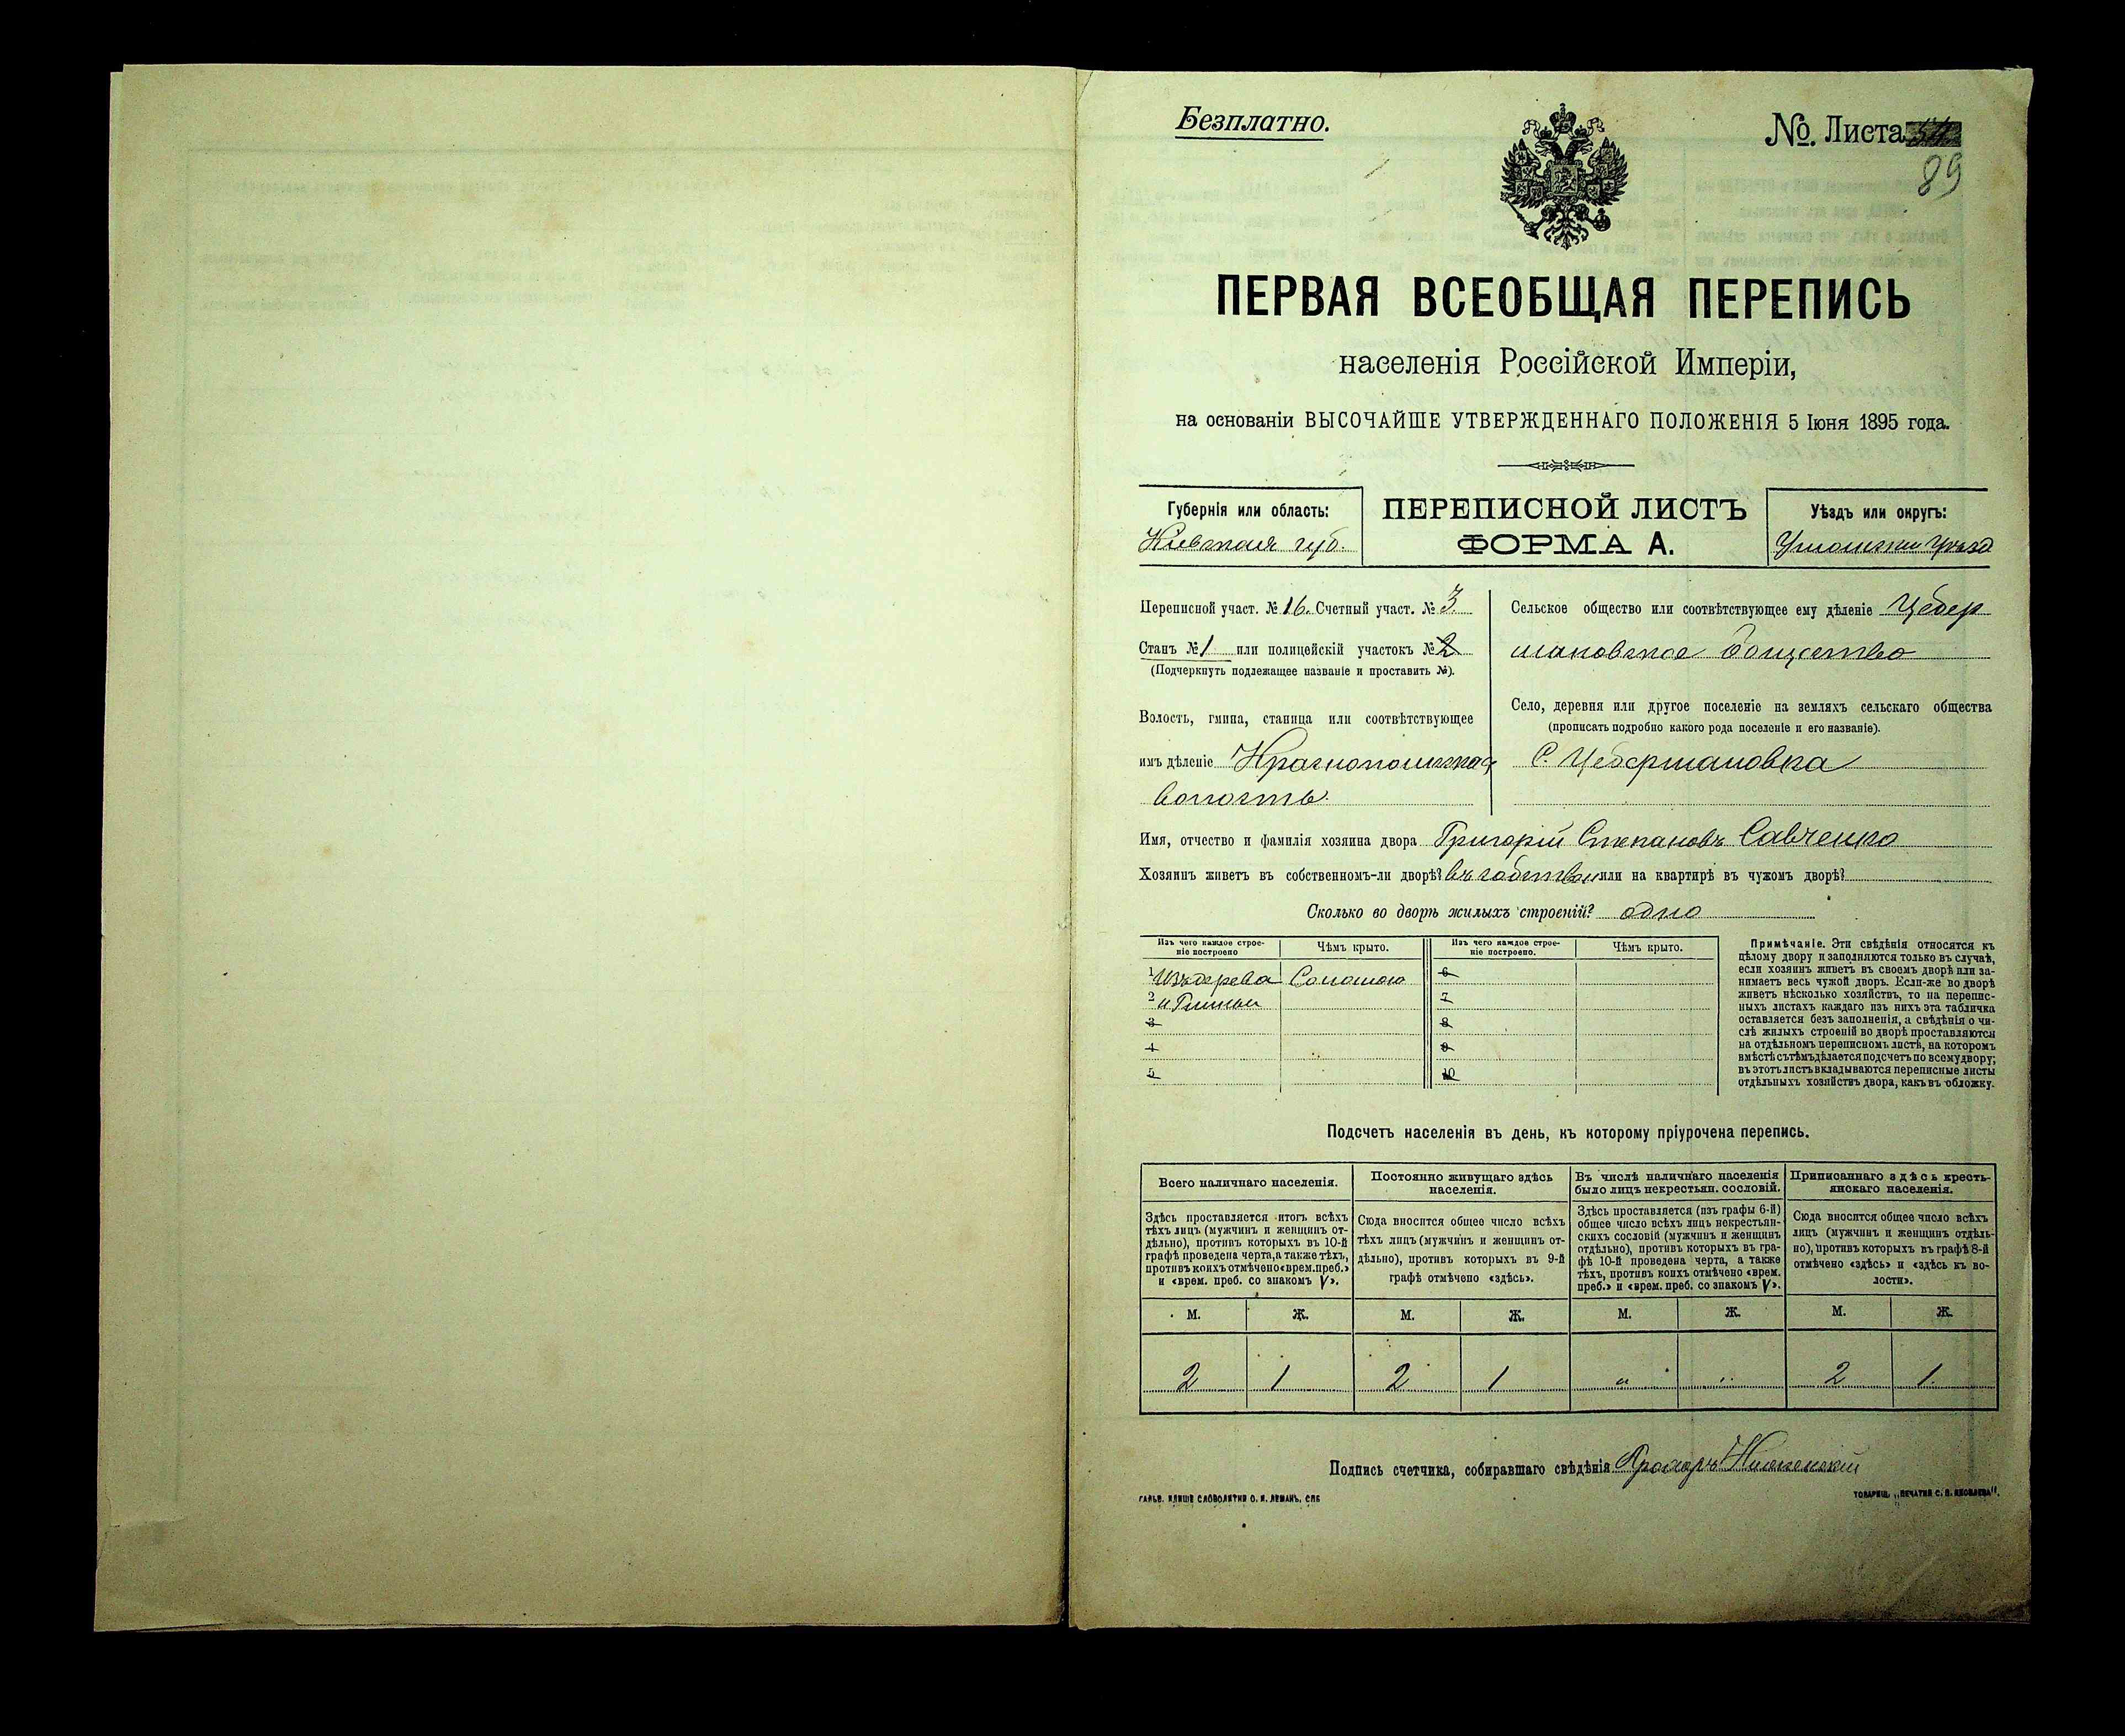 Безплатно.
№ Листа
89
ПЕРВАЯ ВСЕОБЩАЯ ПЕРЕПИСЬ
населенія Россійской Имперіи,
на основаніи ВЫСОЧАЙШЕ УТВЕРЖДЕННАГО ПОЛОЖЕНІЯ 5 Іюня 1895 года.
Губернія или область:
Кіевская губ.
ПЕРЕПИСНОЙ ЛИСТЪ
ФОРМА А.
Уѣздъ или округъ:
Уманскій Уѣзд
Переписной участ. № 16. Счетный участ. № 3.
Станъ № 1 или полицейскій участокъ № 2
(Подчеркнуть подлежащее названіе и проставить №).
Волость, гмина, станица или соотвѣтствующее
имъ дѣленіе Краснопольская
волость.
Сельское общество или соотвѣтствующее ему дѣленіе Цебер
мановское общество
Село, деревня или другое поселеніе на земляхъ сельскаго общества
(прописать подробно какого рода поселеніе и его названіе).
С. Цебермановка
Имя, отчество и фамилія хозяина двора Григорій Степановъ Савченко
Хозяинъ живетъ въ собственномъ-ли дворѣ? въ собствен или на квартирѣ въ чужомъ дворѣ?
Сколько во дворѣ жилыхъ строеній? одно
Изъ чего каждое строе-
ніе построено
Чѣмъ крыто.
Изъ чего каждое строе-
ніе построено.
Чѣмъ крыто.
1 Изъ дерева Соломою
2 и Глины
3
4
5
6
7
8
9
10
Примѣчаніе. Эти свѣдѣнія относятся къ
цѣлому двору и заполняются только въ случаѣ,
если хозяинъ живетъ въ своемъ дворѣ или за-
нимаетъ весь чужой дворъ. Если-же во дворѣ
живетъ нѣсколько хозяйствъ, то на перепис-
ныхъ листахъ каждаго изъ нихъ эта табличка
оставляется безъ заполненія, а свѣдѣнія о чи-
слѣ жилыхъ строеній во дворѣ проставляются
на отдѣльномъ переписномъ листѣ, на которомъ
вмѣстѣ съ тѣмъ дѣлается подсчетъ по всему двору;
въ этотъ листъ вкладываются переписные листы
отдѣльныхъ хозяйствъ двора, какъ въ обложку.
Подсчетъ населенія въ день, къ которому пріурочена перепись.
Всего наличнаго населенія.
Здѣсь проставляется итогъ всѣхъ
тѣхъ лицъ (мужчинъ и женщинъ от-
дѣльно), противъ которыхъ въ 10-й
графѣ проведена черта, а также тѣхъ,
противъ коихъ отмѣчено «врем. преб.»
и «врем. преб. со знакомъ V».
Постоянно живущаго здѣсь
населенія.
Сюда вносится общее число всѣхъ
тѣхъ лицъ (мужчинъ и женщинъ от-
дѣльно), противъ которыхъ въ 9-й
графѣ отмѣчено «здѣсь».
Въ числѣ наличнаго населенія
было лицъ некрестьян. сословій.
Здѣсь проставляется (изъ графы 6-й)
общее число всѣхъ лицъ некрестьян-
скихъ сословій (мужчинъ и женщинъ
отдѣльно), противъ которыхъ въ гра-
фѣ 10-й проведена черта, а также
тѣхъ, противъ коихъ отмѣчено «врем.
преб.» и «врем. преб. со знакомъ V».
Приписаннаго здѣсь кресть-
янскаго населенія.
Сюда вносится общее число всѣхъ
лицъ (мужчинъ и женщинъ отдѣль-
но), противъ которыхъ въ графѣ 8-й
отмѣчено «здѣсь» и «здѣсь къ во-
лости».
М. Ж. М. Ж. М. Ж. М. Ж.
2 1 2 1 " " 2 1.
Подпись счетчика, собиравшаго свѣдѣнія Прохоръ
ГАЛЬВ. КЛИШЕ СЛОВОЛИТНИ О. И. ЛЕМАНЪ, СПБ
ТОВАРИЩ. „ПЕЧАТНЯ С. П. ЯКОВЛЕВА".